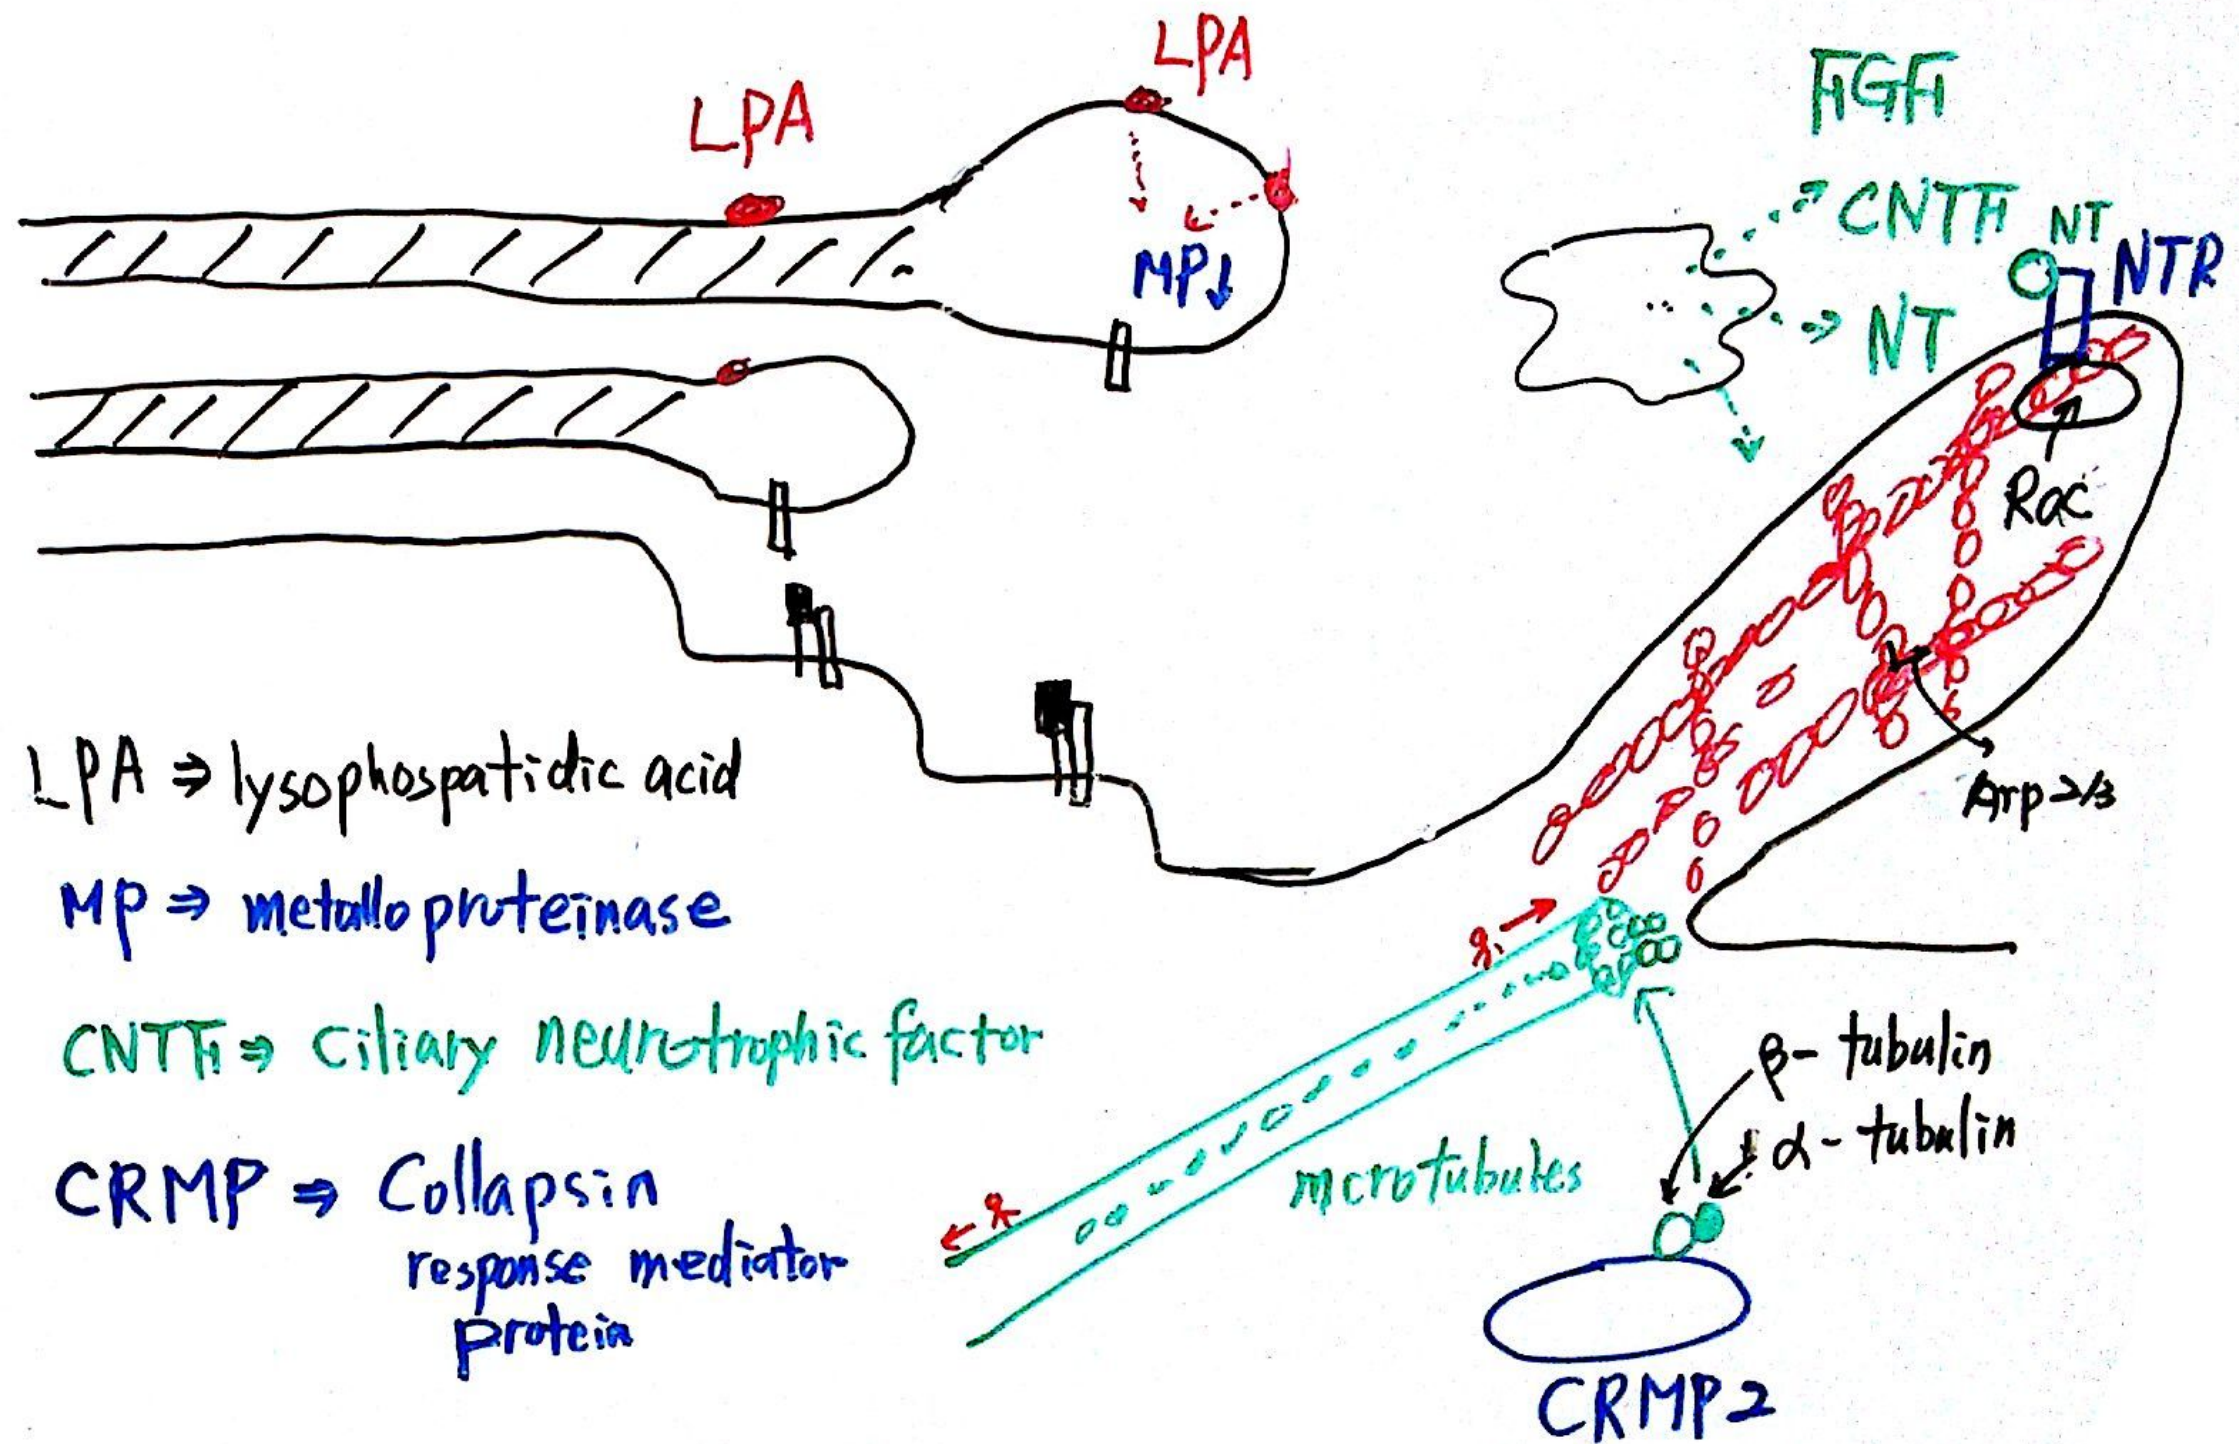 LPA
LPA
MP↓
FGF
CNTF
NT
NT
NTR
Rac
Arp 2/3
LPA ⇒ lysophospatidic acid
MP ⇒ metalloproteinase
CNTF ⇒ Ciliary neurotrophic factor
CRMP ⇒ Collapsin
response mediator
protein
microtubules
β- tubulin
α- tubulin
CRMP2